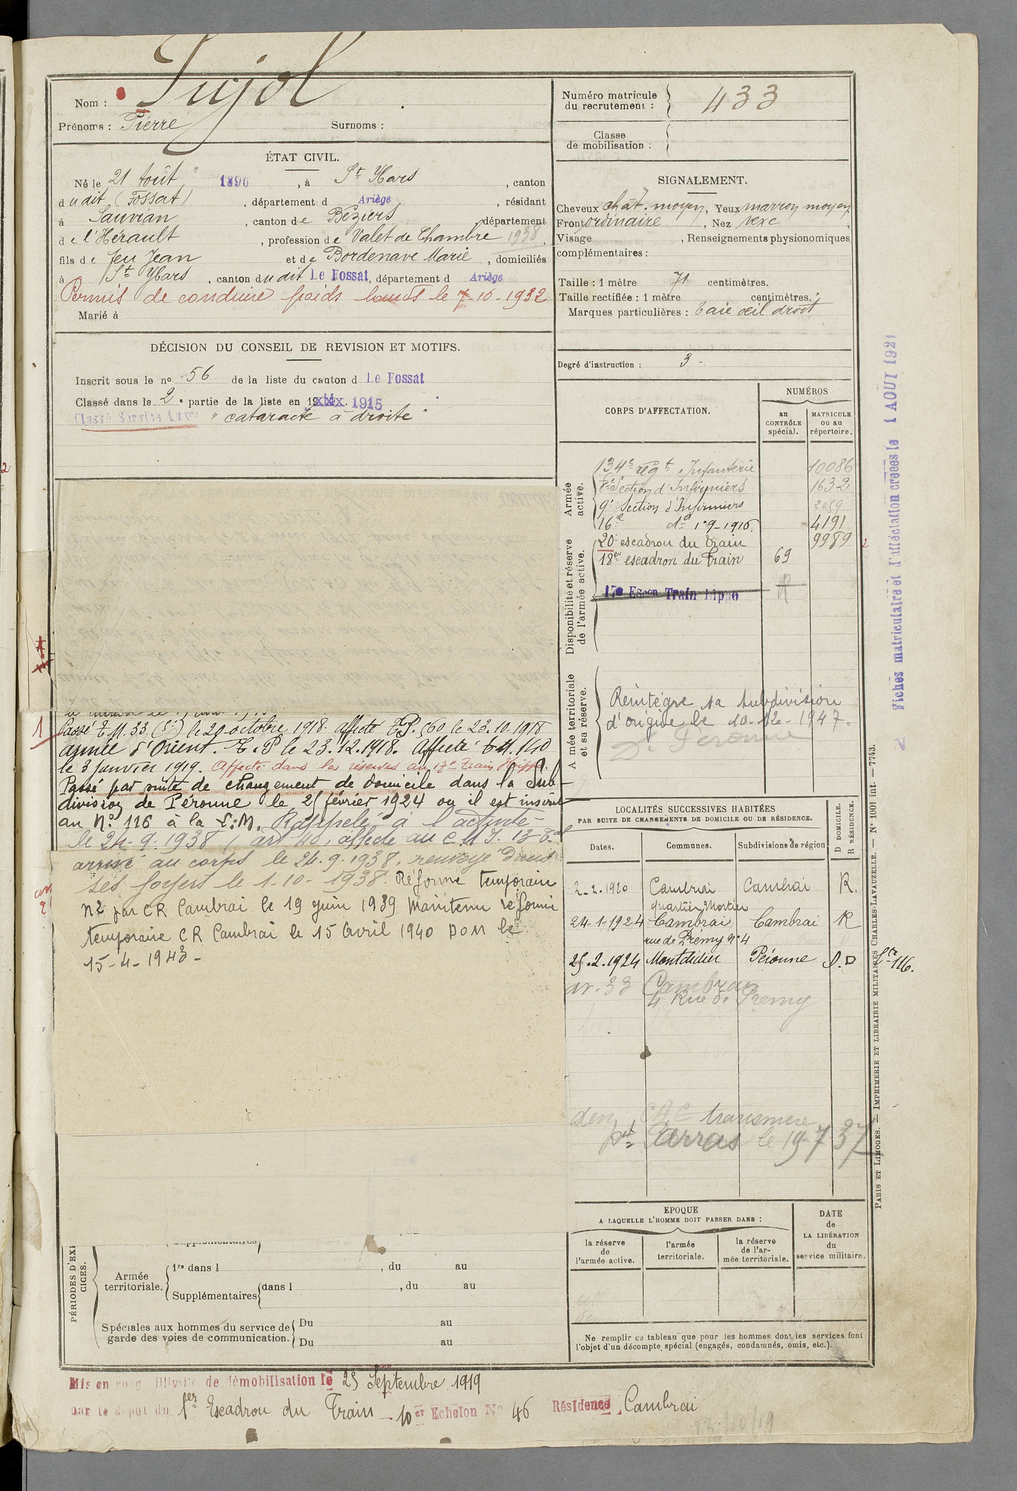 Nom : Pujol
Prénoms : Pierre Surnoms :
Numéro matricule du recrutement : 433
Classe de mobilisation :
ÉTAT CIVIL.
Né le 21 Août 1896, à St Ybars, canton
du dit (Fossat), département d Ariège, résidant
à Sauvian, canton de Béziers, département
de l'Hérault, profession de Valet de Chambre 1938,
fils de feu Jean et de Bordenave Marie, domiciliés
à St Ybars, canton du dit Le Fossat, département d Ariège
Permis de conduire poids lourds le 7-10-1932
Marié à
SIGNALEMENT.
Cheveux chât. moyen, Yeux marron moyen,
Front ordinaire, Nez vexe,
Visage , Renseignements physionomiques
complémentaires :
Taille : 1 mètre 71 centimètres.
Taille rectifiée : 1 mètre centimètres.
Marques particulières : taie œil droit
Degré d'instruction : 3
DÉCISION DU CONSEIL DE REVISION ET MOTIFS.
Inscrit sous le no 56 de la liste du canton d Le Fossat
Classé dans la 2e partie de la liste en 1915
Classé Service Aux. "cataracte à droite"
CORPS D'AFFECTATION.
NUMÉROS
au CONTRÔLE spécial.
MATRICULE OU AU répertoire.
Armée active.
134e régt Infanterie 10086
8e Section d'Infirmiers 1632
9e Section d'Infirmiers
16e do 1-9-1916. 4191
Disponibilité et réserve de l'armée active.
20e escadron du train 9989
18e escadron du Train 69
17e Escon Train Hippo R
Armée territoriale et sa réserve.
Réintègre sa subdivision
d'origine le 10-12-1947.
de Péronne
Passé E.M. 33 le 20 octobre 1918. affecté E.P. 50 le 23.10.1918
armée d'Orient. E.P. le 23.12.1918. Affecté E.M. 140
le 3 janvier 1919. Affecté dans les réserves au 17e Train Hipp.
Passé par suite de changement de domicile dans la Sub-
division de Péronne le 25 février 1924 où il est inscrit
au No 116 à la L.M. Rappelé à l'activité
le 24-9-1938 (art 40, affecté au C.M.I. 13
arrivé au corps le 24.9.1938, renvoyé dans
ses foyers le 1-10-1938. Réformé temporaire
n2 par CR Cambrai le 19 juin 1939 Maintenu réformé
temporaire CR Cambrai le 15 Avril 1940 DOM le
15-4-1943-
LOCALITÉS SUCCESSIVES HABITÉES
PAR SUITE DE CHANGEMENTS DE DOMICILE OU DE RÉSIDENCE.
Dates. Communes. Subdivisions de région
D DOMICILE. R RÉSIDENCE.
2-2-1920 Cambrai Cambrai R.
quartier Mortier
24-1-1924 Cambrai Cambrai R
rue de Premy no 4
25.2.1924 Montdidier Péronne S.D 116.
33 Cambrai
4 Rue de Premy
transmise
pt Arras le 19-7 37
EPOQUE
A LAQUELLE L'HOMME DOIT PASSER DANS :
la réserve de l'armée active.
l'armée territoriale.
la réserve de l'armée territoriale.
DATE de LA LIBÉRATION du service militaire.
Ne remplir ce tableau que pour les hommes dont les services font
l'objet d'un décompte spécial (engagés, condamnés, omis, etc.).
PÉRIODES D'EXERCICES.
Supplémentaires
Armée territoriale. 1re dans l , du au
Supplémentaires dans l , du au
Spéciales aux hommes du service de garde des voies de communication. Du au
Du au
Mis en congé illimité de démobilisation le 25 Septembre 1919
par le dépôt du 1er Escadron du Train 10er Echelon No 46 Résidence Cambrai
12/10/19
Fiches matriculaire et d'affectation créées le 1 AOUT 1921
PARIS ET LIMOGES. — IMPRIMERIE ET LIBRAIRIE MILITAIRES CHARLES-LAVAUZELLE. — No 1001 int. — 7743.